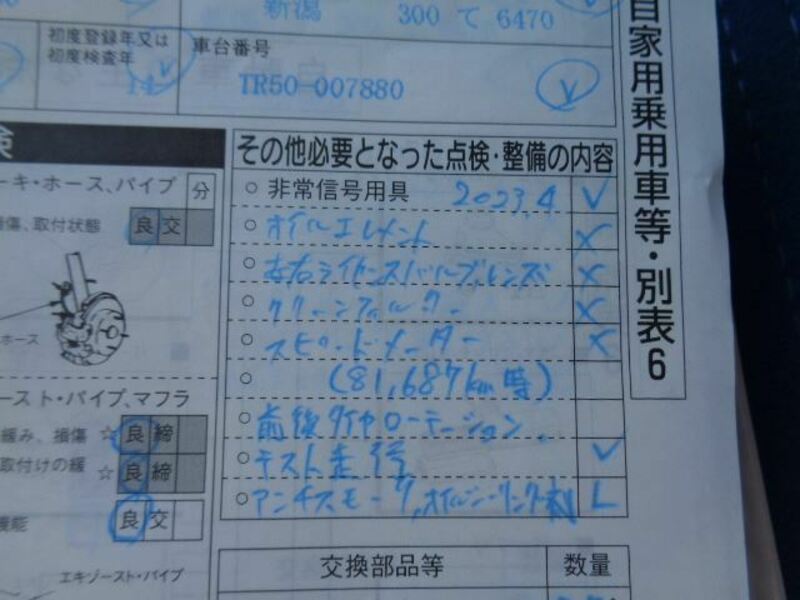 新潟 300 て 6470
初度登録年又は
初度検査年
14
車台番号
TR50-007880
自家用乗用車等・別表6
検
その他必要となった点検・整備の内容
ーキ・ホース、パイプ
分
損傷、取付状態
良 交
ホース
○ 非常信号用具 2023.4 ✓
○ オイルエレメント ×
○ 左右ライセンスバルブ,レンズ ×
○ クリーンフィルター ×
○ スピードメーター ×
○ (81,687km時)
○ 前後タイヤローテーション
○ テスト走行 ✓
○ アンチスモーク,オイルシーリング剤 L
ースト・パイプ、マフラ
緩み、損傷 ☆ 良 締
取付けの緩 ☆ 良 締
機能 良 交
エキゾースト・パイプ
交換部品等 数量